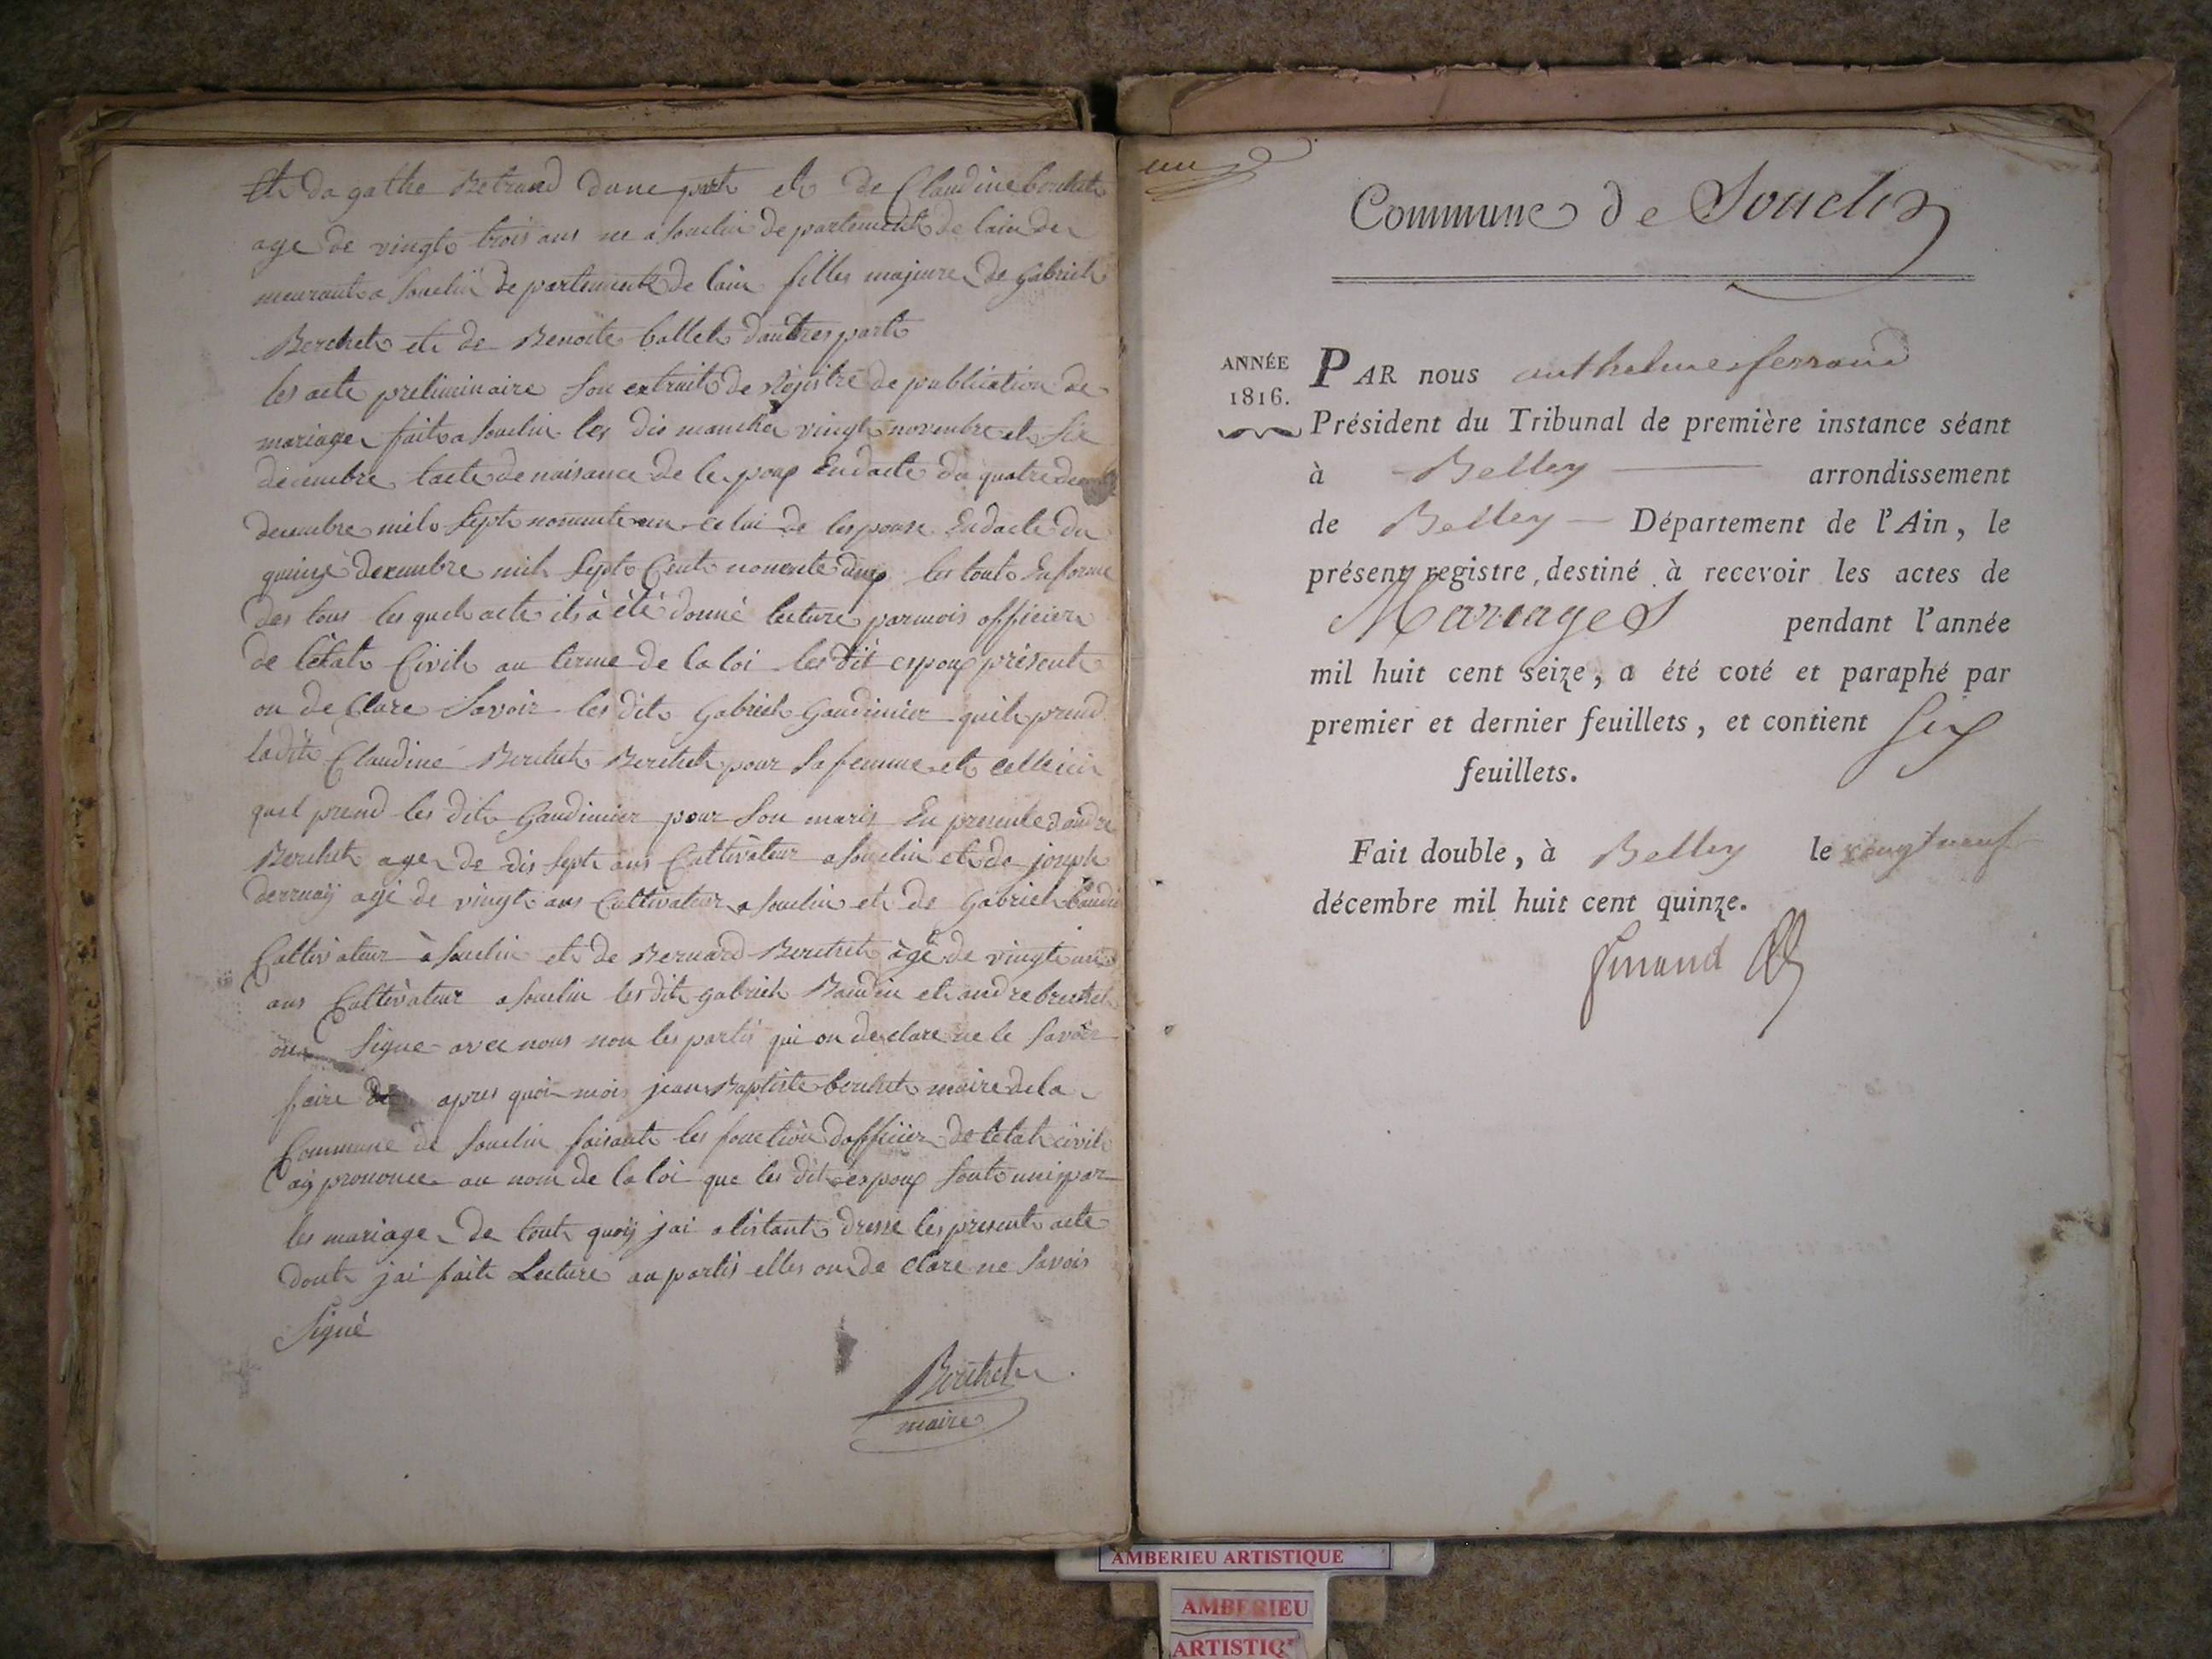 Et dagathe Betrand dune part et de Claudine berchet
age de vingt trois ans ne a Souclin departement de lain de
meurant a Souclin departement de lain filles majeure de gabriel
Berchet et de Benoite ballet dautres part
les acte preliminaire Son extrait de Rejistre de publication de
mariage fait a Souclin les dis manche vingt novembre et Six
decembre lacte de naisance de lepoux En dacte du quatre
decembre mil Sept nonante un celui de lespouse En dacte du
quinze decembre mil Sept Cent nonente deux les tout En forme
des tous les quels acte ils à été donné lecture par mois officier
de létat Civil au terme de la loi les dit espoux présent
on de Clare Savoir les dit Gabriel Gaudinier quil prend
ladite Claudine Berchet Berchet pour Sa femme et celle ici
quel prend les dit Gaudinier pour Son maris En presente dandre
Berchet age de dis Sept ans Cultivateur a Souclin et de joseph
derruaÿ agé de vingt ans Cultivateur a Souclin et de Gabriel baudin
Cultivateur à Souclin et de Bernard Berchet àgé de vingt
ans Cultivateur a Souclin les dit gabriel Baudin et andre brechet
on Signe avec nous non les partis qui on declare ne le Savoir
faire apres quoi mois jean Baptiste berchet maire de la
Commune de Souclin faisant les fonction dofficier de letat civil
aÿ prononce au nom de la loi que les dit espoux Sont unis par
les mariage de tout quoÿ jai a listant dresse les present acte
dont jai fait Lecture au partis elles on de clare ne Savoir
Signé
Berchet
maire
un
Commune de Souclin
ANNÉE
1816.
PAR nous anthelme ferrand
Président du Tribunal de première instance séant
à Belley arrondissement
de Belley Département de l'Ain, le
présent registre, destiné à recevoir les actes de
Mariages pendant l'année
mil huit cent seize, a été coté et paraphé par
premier et dernier feuillets, et contient Six
feuillets.
Fait double, à Belley le vingt neuf
décembre mil huit cent quinze.
AMBERIEU ARTISTIQUE
AMBERIEU
ARTISTIQ